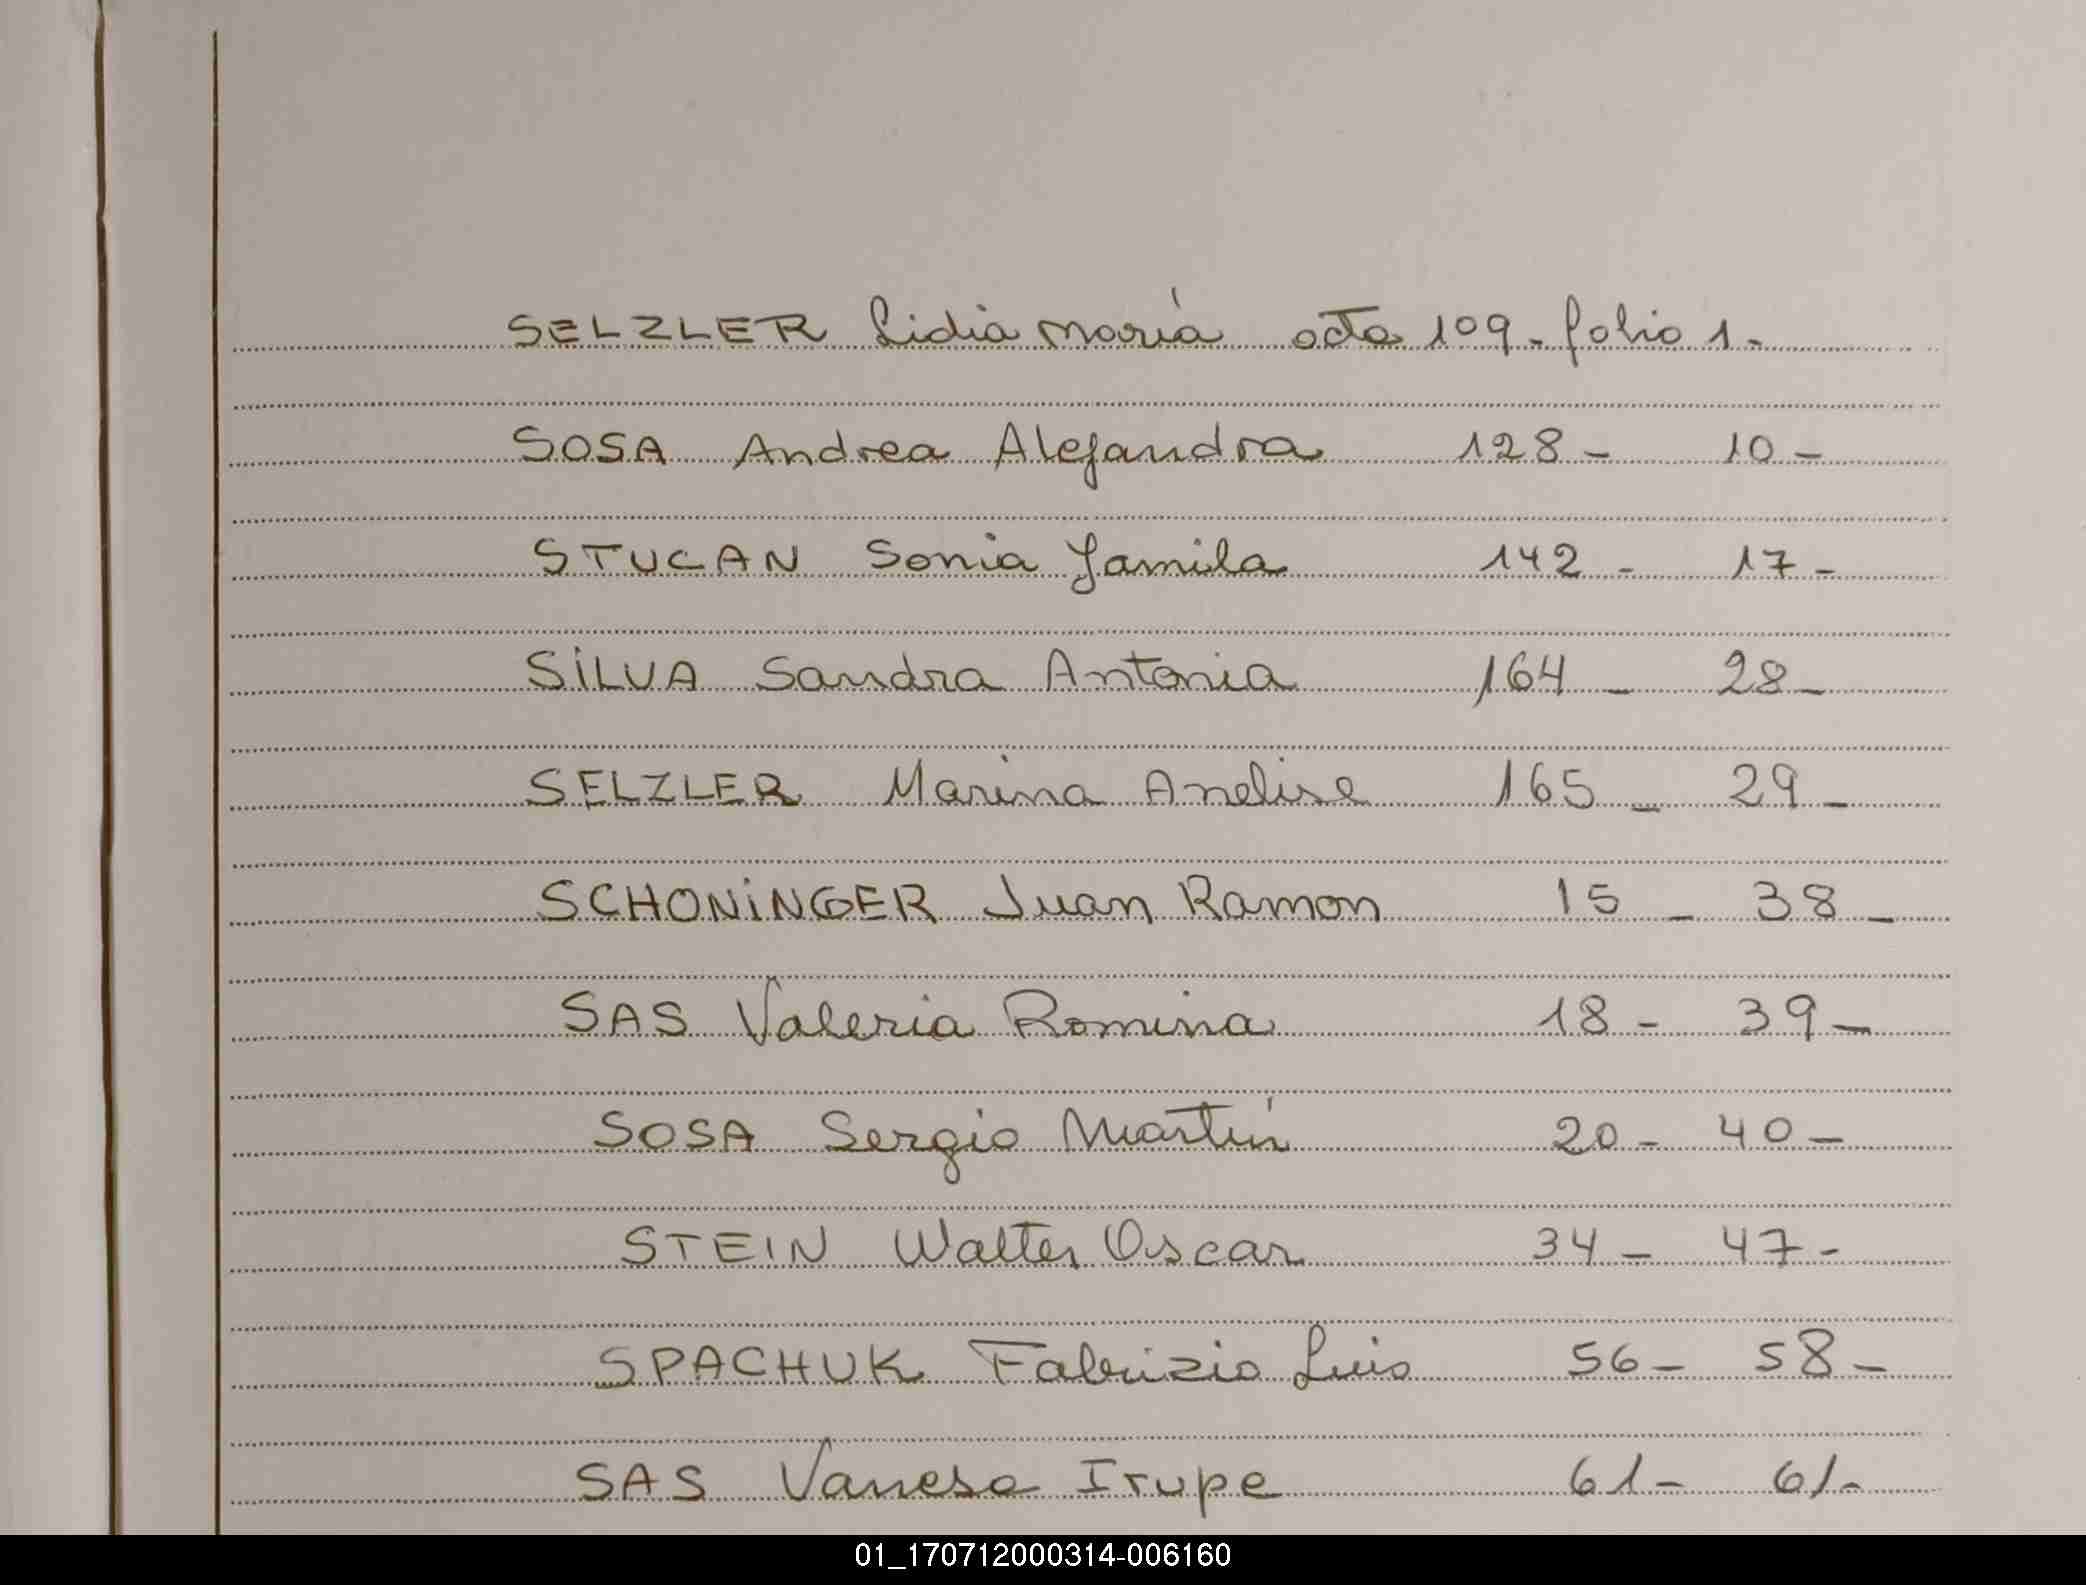 SELZLER Lidia María acta 109- folio 1-
SOSA Andrea Alejandra 128- 10-
STUCAN Sonia Jamila 142- 17-
SILVA Sandra Antonia 164- 28-
SELZLER Marina Anelise 165- 29-
SCHONINGER Juan Ramon 15- 38-
SAS Valeria Romina 18- 39-
SOSA Sergio Martín 20- 40-
STEIN Walter Oscar 34- 47-
SPACHUK Fabrizio Luis 56- 58-
SAS Vanesa Irupe 61- 61-
01_170712000314-006160